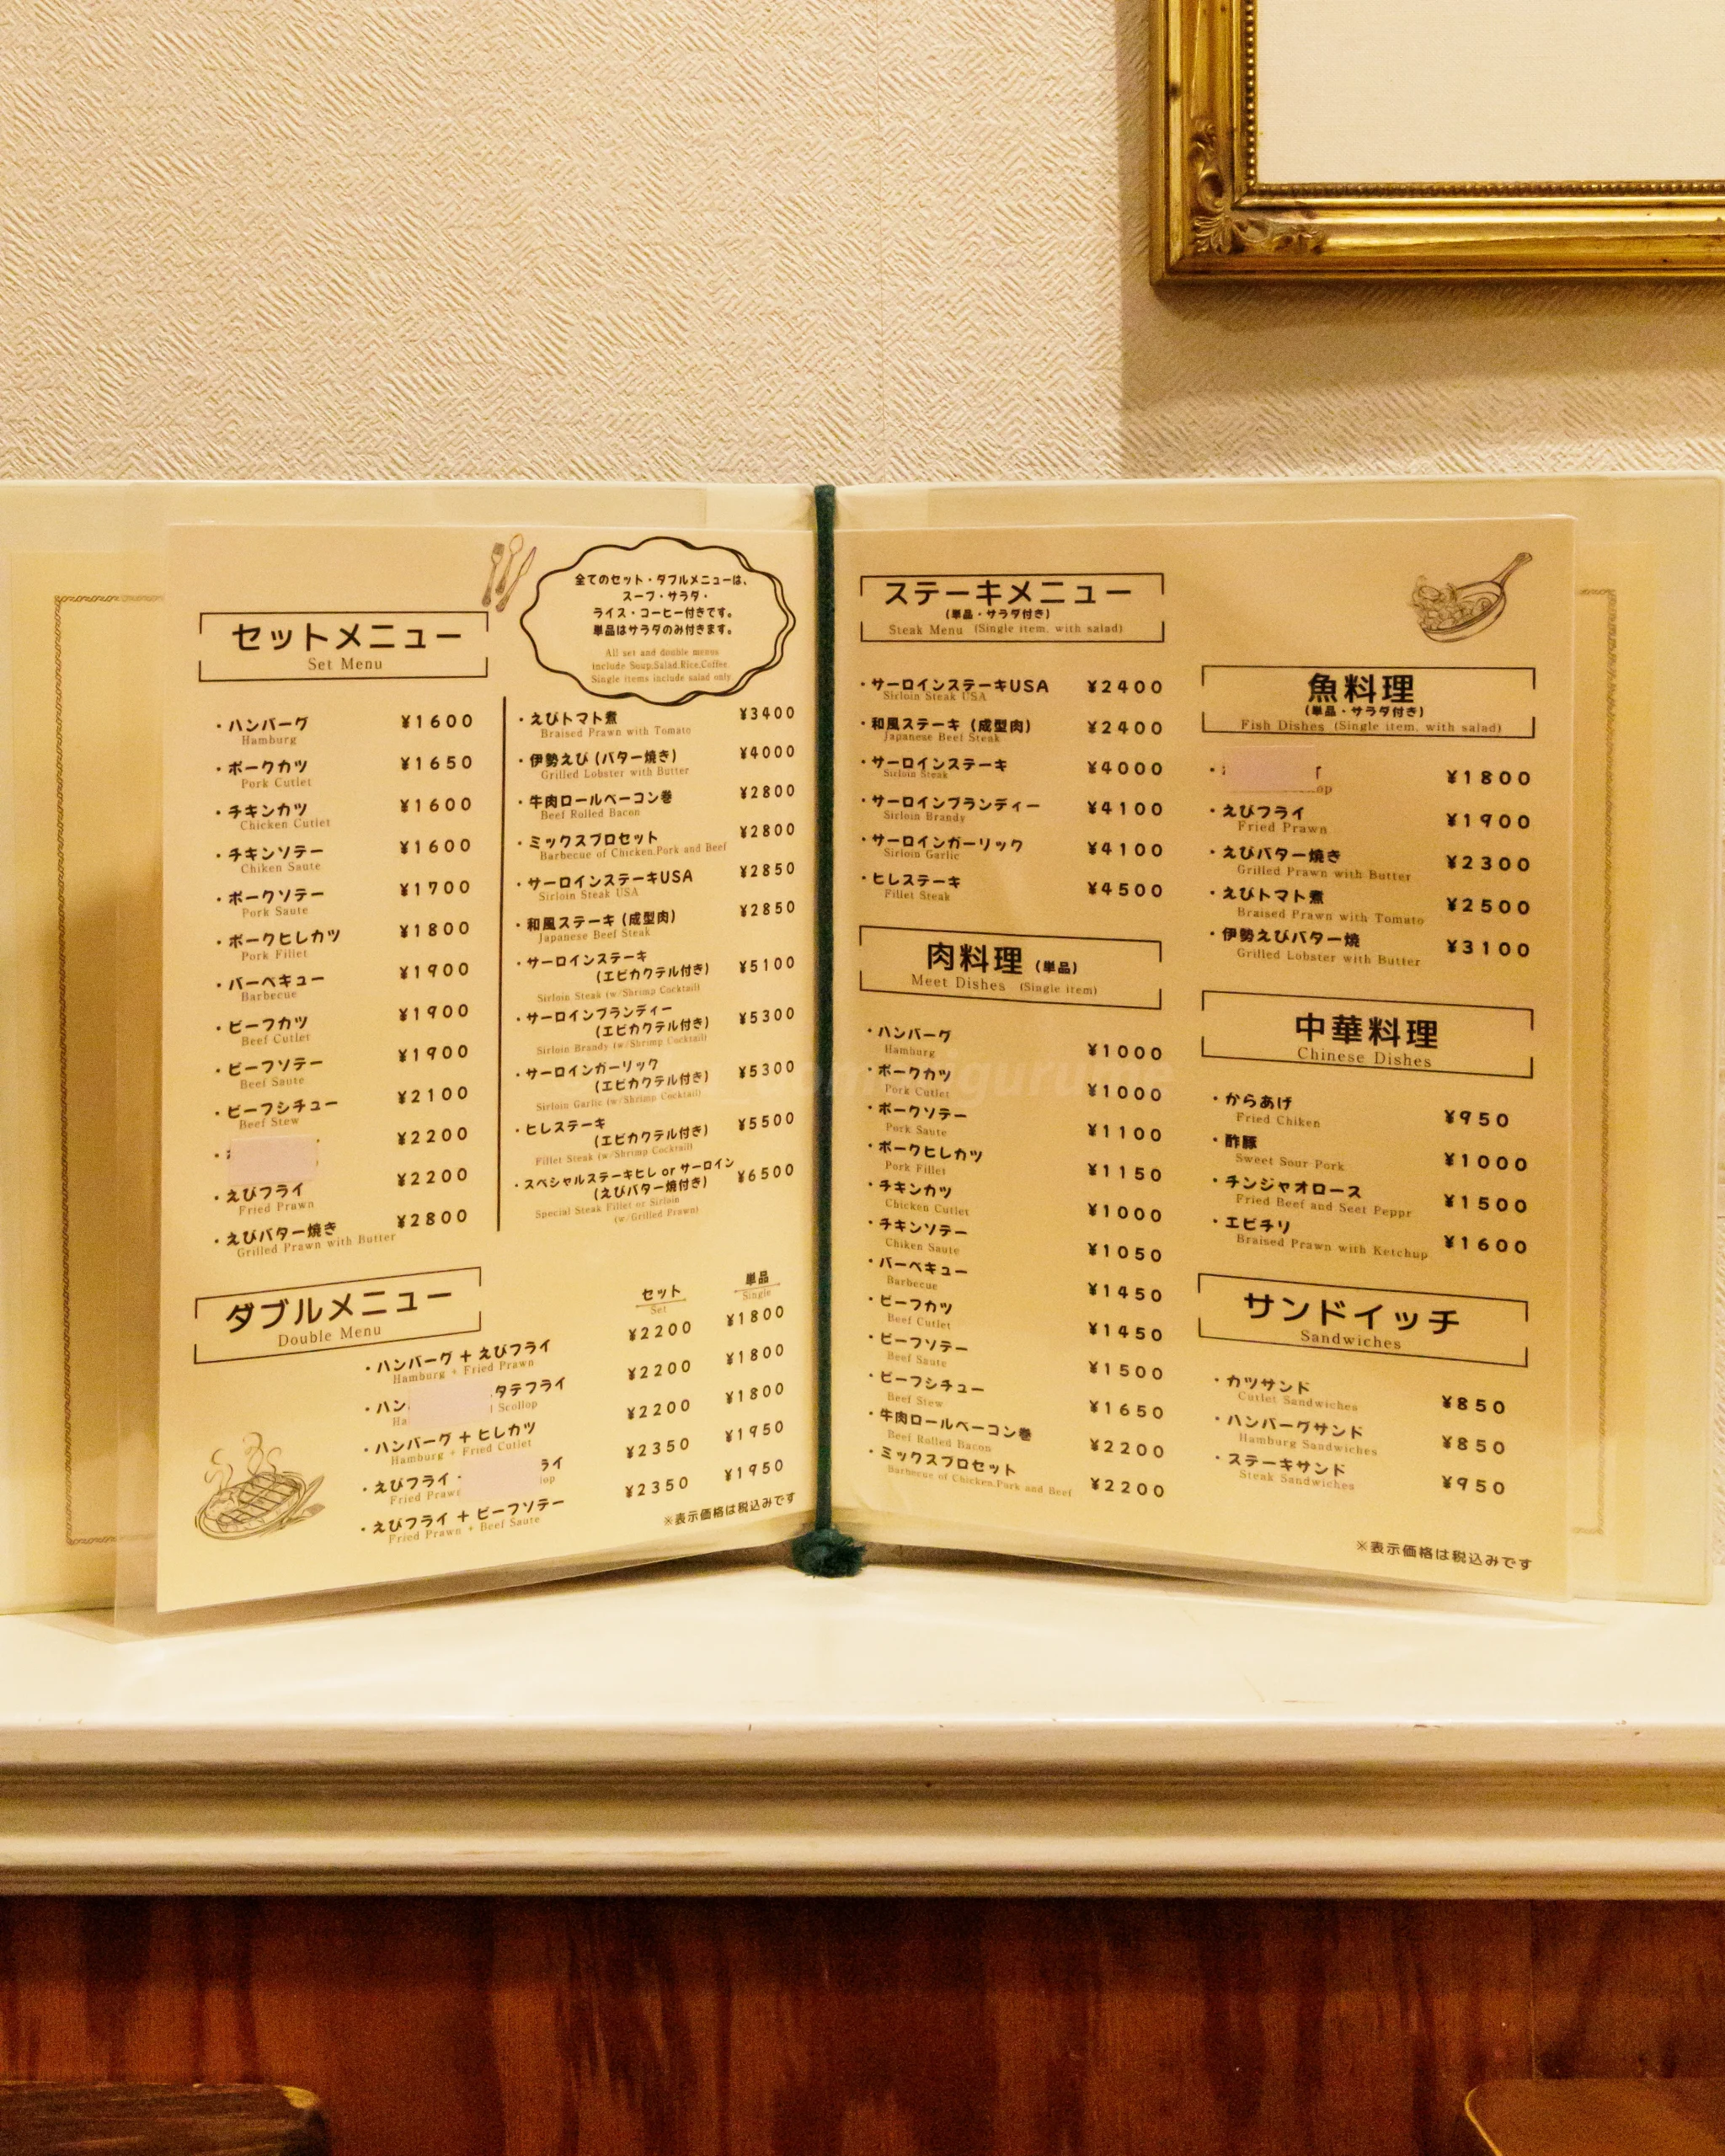 セットメニュー
Set Menu
全てのセット・ダブルメニューは、
スープ・サラダ・
ライス・コーヒー付きです。
単品はサラダのみ付きます。
All set and double menus
include Soup,Salad,Rice,Coffee.
Single items include salad only
・ハンバーグ ¥1600
Hamburg
・ポークカツ ¥1650
Pork Cutlet
・チキンカツ ¥1600
Chicken Cutlet
・チキンソテー ¥1600
Chiken Saute
・ポークソテー ¥1700
Pork Saute
・ポークヒレカツ ¥1800
Pork Fillet
・バーベキュー ¥1900
Barbecue
・ビーフカツ ¥1900
Beef Cutlet
・ビーフソテー ¥1900
Beef Saute
・ビーフシチュー ¥2100
Beef Stew
・ ¥2200
・えびフライ ¥2200
Fried Prawn
・えびバター焼き ¥2800
Grilled Prawn with Butter
・えびトマト煮 ¥3400
Braised Prawn with Tomato
・伊勢えび (バター焼き) ¥4000
Grilled Lobster with Butter
・牛肉ロールベーコン巻 ¥2800
Beef Rolled Bacon
・ミックスプロセット ¥2800
Barbecue of Chicken,Pork and Beef
・サーロインステーキUSA ¥2850
Sirloin Steak USA
・和風ステーキ (成型肉) ¥2850
Japanese Beef Steak
・サーロインステーキ
(エビカクテル付き) ¥5100
Sirloin Steak (w/Shrimp Cocktail)
・サーロインブランディー
(エビカクテル付き) ¥5300
Sirloin Brandy (w/Shrimp Cocktail)
・サーロインガーリック
(エビカクテル付き) ¥5300
Sirloin Garlic (w/Shrimp Cocktail)
・ヒレステーキ
(エビカクテル付き) ¥5500
Fillet Steak (w/Shrimp Cocktail)
・スペシャルステーキヒレ or サーロイン
(えびバター焼付き) ¥6500
Special Steak Fillet or Sirloin
(w/Grilled Prawn)
ダブルメニュー
Double Menu
セット 単品
Set Single
・ハンバーグ + えびフライ ¥2200 ¥1800
Hamburg + Fried Prawn
・ハン タテフライ ¥2200 ¥1800
Ha Scollop
・ハンバーグ + ヒレカツ ¥2200 ¥1800
Hamburg + Fried Cutlet
・えびフライ ライ ¥2350 ¥1950
Fried Praw op
・えびフライ + ビーフソテー ¥2350 ¥1950
Fried Prawn + Beef Saute
※表示価格は税込みです
ステーキメニュー
(単品・サラダ付き)
Steak Menu (Single item, with salad)
・サーロインステーキUSA ¥2400
Sirloin Steak USA
・和風ステーキ (成型肉) ¥2400
Japanese Beef Steak
・サーロインステーキ ¥4000
Sirloin Steak
・サーロインブランディー ¥4100
Sirloin Brandy
・サーロインガーリック ¥4100
Sirloin Garlic
・ヒレステーキ ¥4500
Fillet Steak
肉料理 (単品)
Meet Dishes (Single item)
・ハンバーグ ¥1000
Hamburg
・ポークカツ ¥1000
Pork Cutlet
・ポークソテー ¥1100
Pork Saute
・ポークヒレカツ ¥1150
Pork Fillet
・チキンカツ ¥1000
Chicken Cutlet
・チキンソテー ¥1050
Chiken Saute
・バーベキュー ¥1450
Barbecue
・ビーフカツ ¥1450
Beef Cutlet
・ビーフソテー ¥1500
Beef Saute
・ビーフシチュー ¥1650
Beef Stew
・牛肉ロールベーコン巻 ¥2200
Beef Rolled Bacon
・ミックスプロセット ¥2200
Barbecue of Chicken,Pork and Beef
魚料理
(単品・サラダ付き)
Fish Dishes (Single item, with salad)
・ ¥1800
op
・えびフライ ¥1900
Fried Prawn
・えびバター焼き ¥2300
Grilled Prawn with Butter
・えびトマト煮 ¥2500
Braised Prawn with Tomato
・伊勢えびバター焼 ¥3100
Grilled Lobster with Butter
中華料理
Chinese Dishes
・からあげ ¥950
Fried Chiken
・酢豚 ¥1000
Sweet Sour Pork
・チンジャオロース ¥1500
Fried Beef and Seet Peppr
・エビチリ ¥1600
Braised Prawn with Ketchup
サンドイッチ
Sandwiches
・カツサンド ¥850
Cutlet Sandwiches
・ハンバーグサンド ¥850
Hamburg Sandwiches
・ステーキサンド ¥950
Steak Sandwiches
※表示価格は税込みです